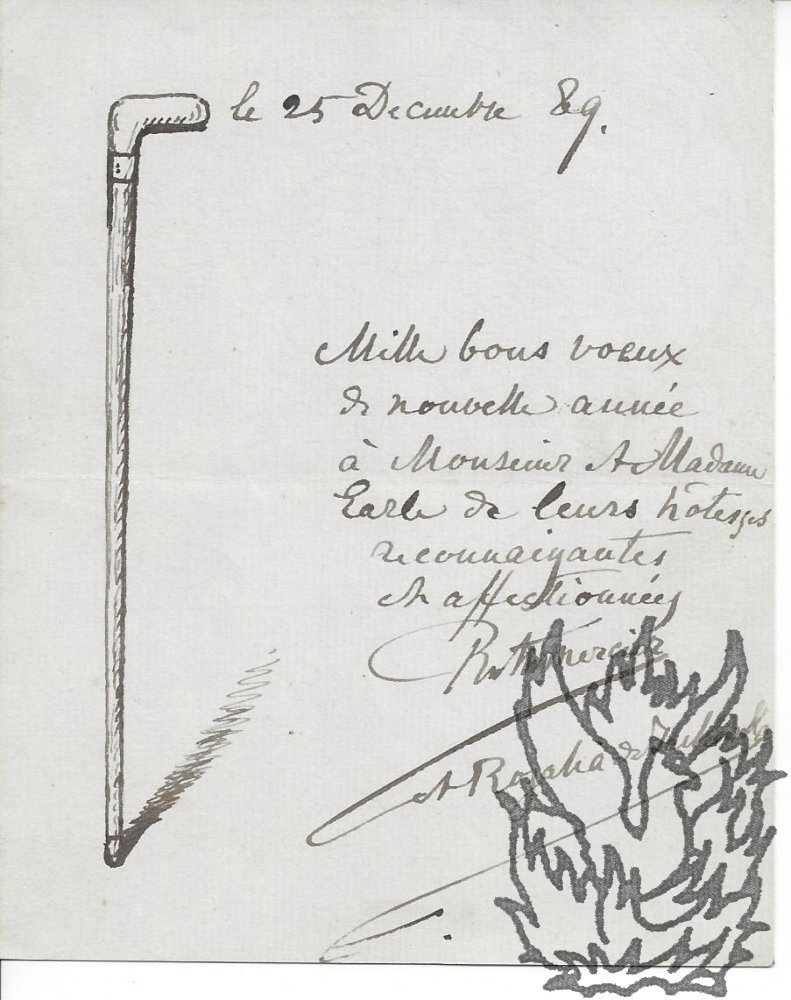 le 25 Decembre 89.
Mille bons voeux
de nouvelle année
à Monsieur et Madame
Earle de leurs hôtesses
reconnaissantes
et affectionnées
et Rosalia de